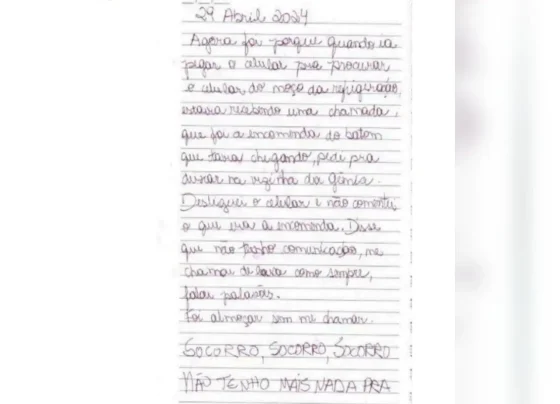 29 Abril 2024
Agora foi porque quando ia
pegar o celular pra procurar
o celular do moço da refrigeração,
estava recebendo uma chamada,
que foi a encomenda do batom
que tava chegando, pedi pra
deixar na vizinha da
Desliguei o celular e não comentei
o que era a encomenda. Disse
que não tenho comunicação, me
chamou de como sempre,
falou palavrão.
Foi almoçar sem me chamar.
SOCORRO, SOCORRO, SOCORRO
NÃO TENHO MAIS NADA PRA